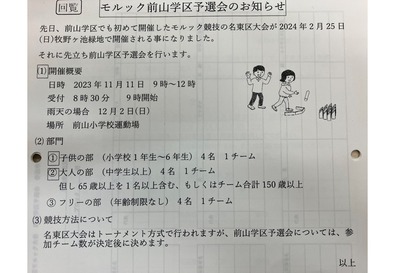 回覧 モルック前山学区予選会のお知らせ
先日、前山学区でも初めて開催したモルック競技の名東区大会が2024年2月25日
(日)牧野ヶ池緑地で開催される事になりました。
それに先立ち前山学区予選会を行います。
(1)開催概要
日時 2023年11月11日 9時～12時
受付 8時30分 9時開始
雨天の場合 12月2日(日)
場所 前山小学校運動場
(2)部門
①子供の部 (小学校1年生～6年生) 4名 1チーム
②大人の部 (中学生以上) 4名 1チーム
但し65歳以上を1名以上含む、もしくはチーム合計150歳以上
③フリーの部 (年齢制限なし) 4名 1チーム
(3)競技方法について
名東区大会はトーナメント方式で行われますが、前山学区予選会については、参
加チーム数が決定後に決めます。
以上